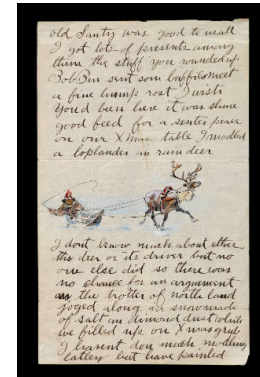 old Santy was good to us all
I got lots of presents among
them the stuff you rounded up
Bob Sun sent som buffilo meet
a fine hump rost I wish
youd been here it was shure
good feed for a senter peace
on our Xmas table I modled
a loplander in rain deer
I dont know much about ether
the deer or its driver but no
one else did so there was
no chance for an argument
as the trotter of north land
joged along in snow made
of salt an dimond dust while
we filled up on Xmas grub
I havent don much modling
latley but have painted